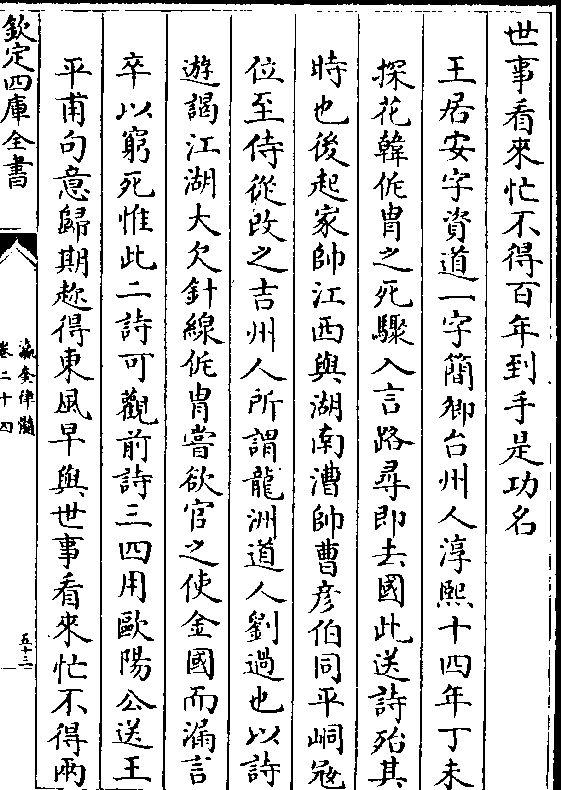 世事看來忙不得百年到手是功名
王居安字資道一字簡卿台州人淳熙十四年丁未
探花韓侂胄之死驟入言路尋即去國此送詩殆其
時也後起家帥江西與湖南漕帥曹彥伯同平峒冦
位至侍從改之吉州人所謂龍洲道人劉過也以詩
遊謁江湖大欠針線侂胄嘗欲官之使金國而漏言
卒以窮死惟此二詩可觀前詩三四用歐陽公送王
平甫句意歸期趂得東風早與世事看來忙不得兩
欽定四庫全書
瀛奎律髓
卷二十四
五十三